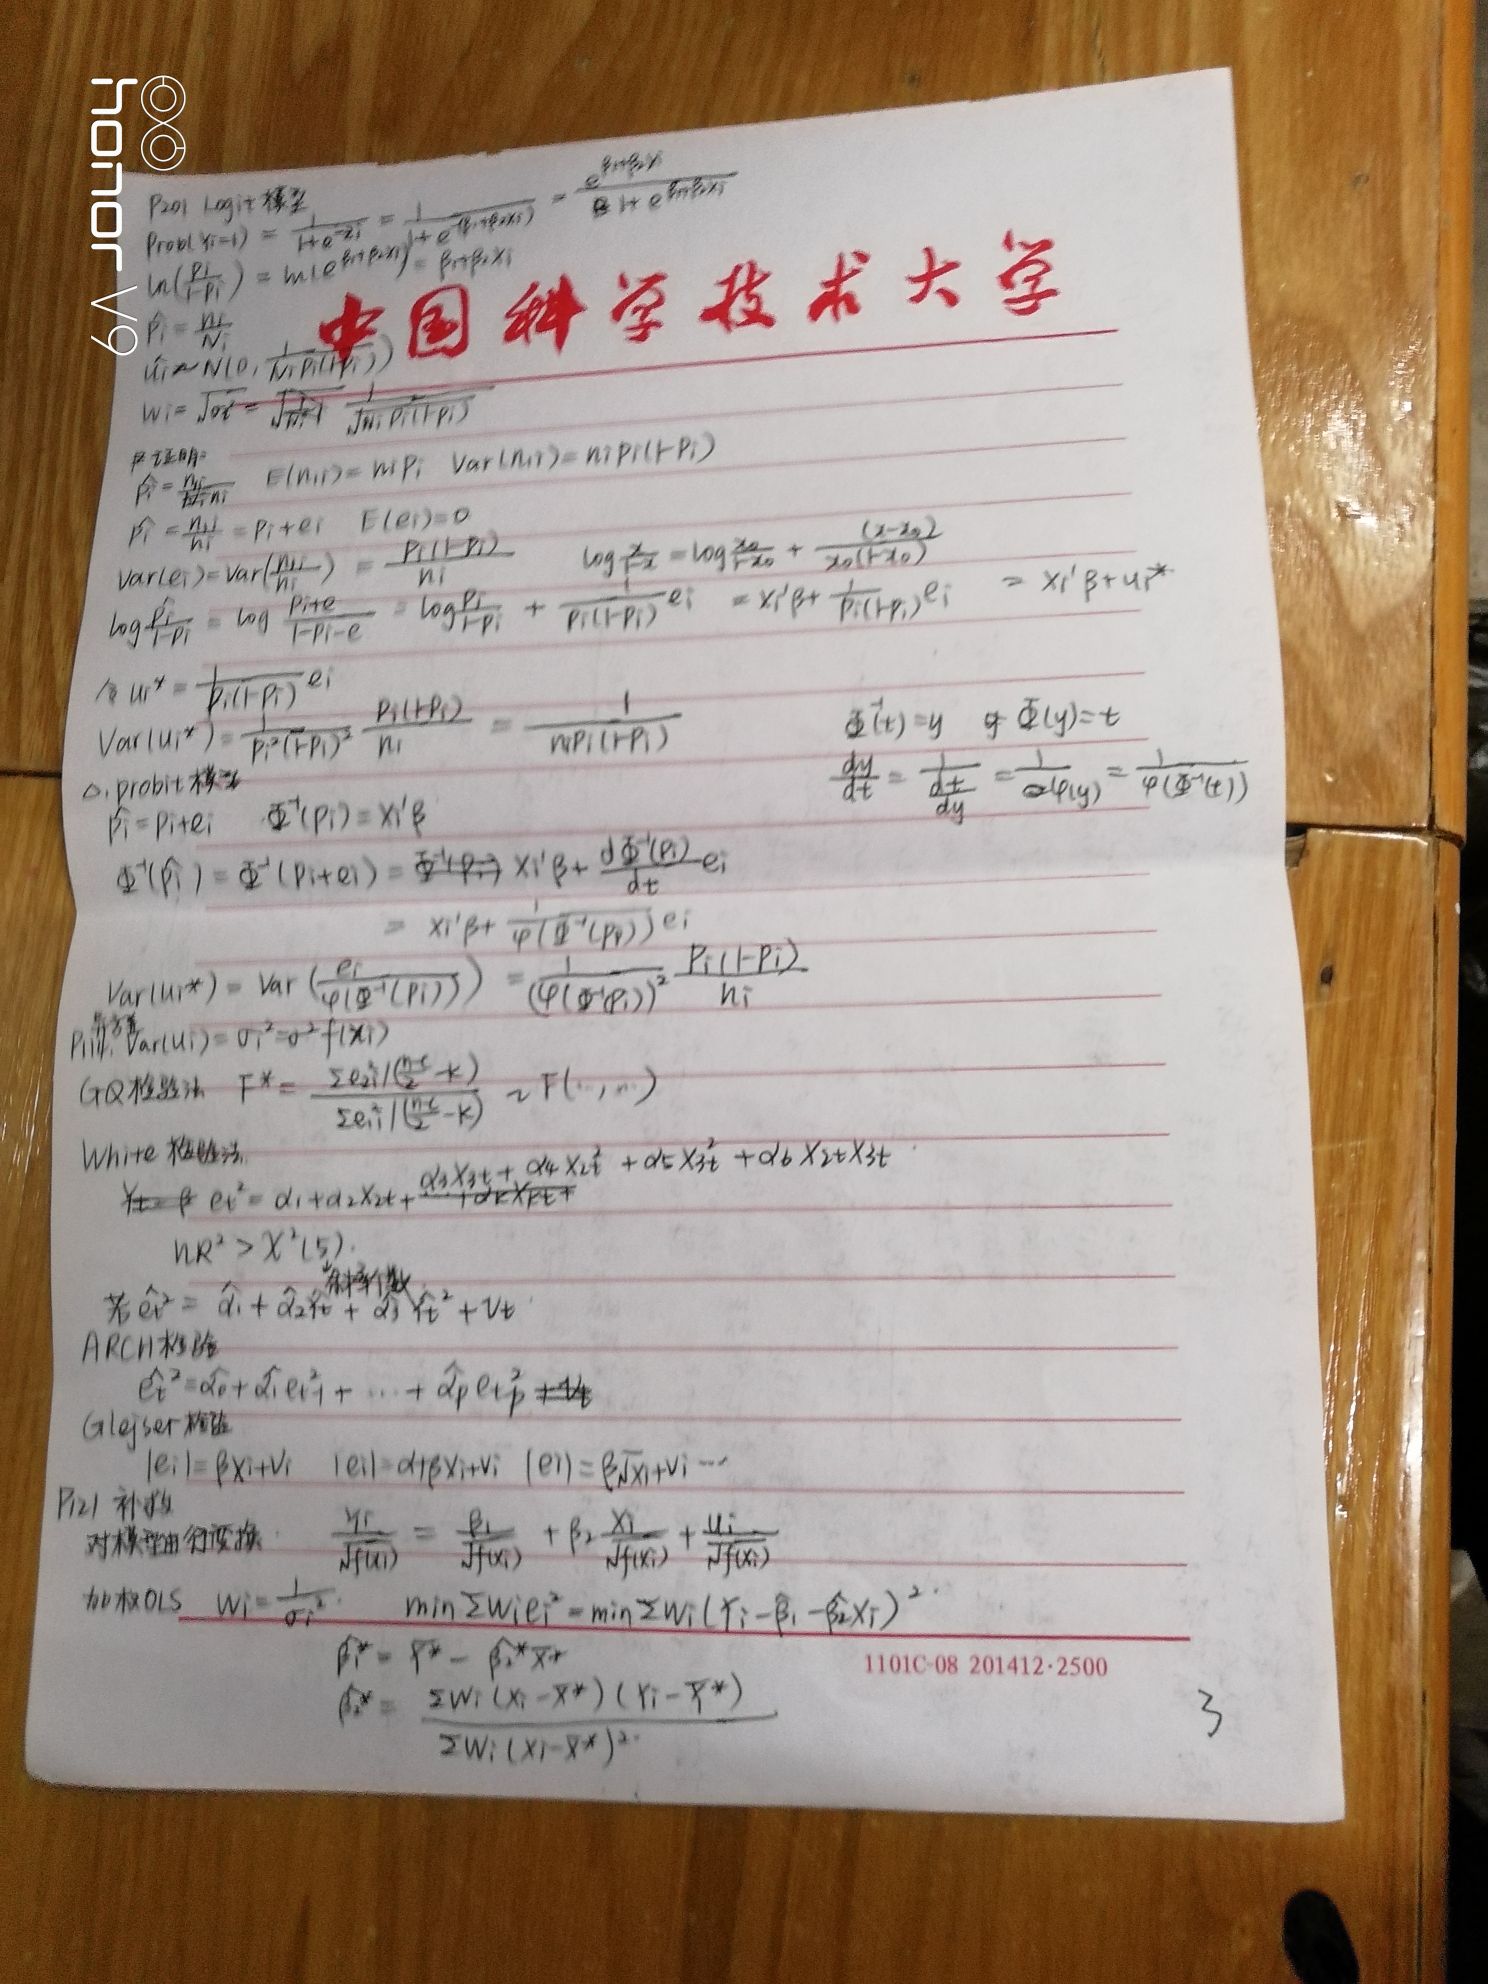 honor V9
P201 Logit模型
Prob(Yi=1) = 1/(1+e^-zi) = 1/(1+e^-(β1+β2Xi)) = e^(β1+β2Xi)/(1+e^(β1+β2Xi))
ln(Pi/(1-Pi)) = ln(e^(β1+β2Xi)) = β1+β2Xi
中国科学技术大学
p̂i = ni/Ni
ûi ~ N(0, 1/(NiPi(1-Pi)))
证明:
E(n1i) = niPi Var(n1i) = niPi(1-Pi)
p̂i = n1i/ni = Pi+ei E(ei)=0
Var(ei) = Var(n1i/ni) = Pi(1-Pi)/ni log x/(1-x) = log x0/(1-x0) + (x-x0)/(x0(1-x0))
log p̂i/(1-p̂i) = log (Pi+e)/(1-Pi-e) = log Pi/(1-Pi) + 1/(Pi(1-Pi)) ei = xi'β + 1/(Pi(1-Pi)) ei = xi'β+ui*
令 ui* = 1/(Pi(1-Pi)) ei
Var(ui*) = 1/(Pi²(1-Pi)²) Pi(1-Pi)/ni = 1/(niPi(1-Pi)) Φ⁻¹(t)=y Φ(y)=t
△. probit模型 dy/dt = 1/(dt/dy) = 1/φ(y) = 1/φ(Φ⁻¹(t))
p̂i = Pi+ei Φ⁻¹(Pi) = xi'β
Φ⁻¹(p̂i) = Φ⁻¹(Pi+ei) = xi'β + dΦ⁻¹(Pi)/dt ei
= xi'β + 1/φ(Φ⁻¹(Pi)) ei
Var(ui*) = Var(ei/φ(Φ⁻¹(Pi))) = 1/(φ(Φ⁻¹(Pi)))² Pi(1-Pi)/ni
异方差 Var(ui) = σi² = σ²f(xi)
GQ检验法 F* = Σe2i²/((n-c)/2-k) / Σe1i²/((n-c)/2-k) ~ F(…, …)
White检验法
et² = α1+α2X2t+α3X3t+α4X2t²+α5X3t²+α6X2tX3t
nR² > χ²(5).
êt² = α̂1+α̂2Ŷt+α̂3Ŷt²+Vt
ARCH检验
êt² = α̂0+α̂1et-1²+…+α̂pet-p²
Glejser检验
|ei| = βXi+Vi |ei| = α+βXi+Vi |ei| = β√Xi+Vi …
P121 补救
对模型进行变换 Yi/√f(xi) = β1/√f(xi) + β2 Xi/√f(xi) + ui/√f(xi)
加权OLS Wi = 1/σi² min ΣWiei² = min ΣWi(Yi-β̂1-β̂2Xi)²
β̂1* = Ȳ* - β̂2*X̄*
1101C-08 201412·2500
β̂2* = ΣWi(Xi-X̄*)(Yi-Ȳ*) / ΣWi(Xi-X̄*)²
3